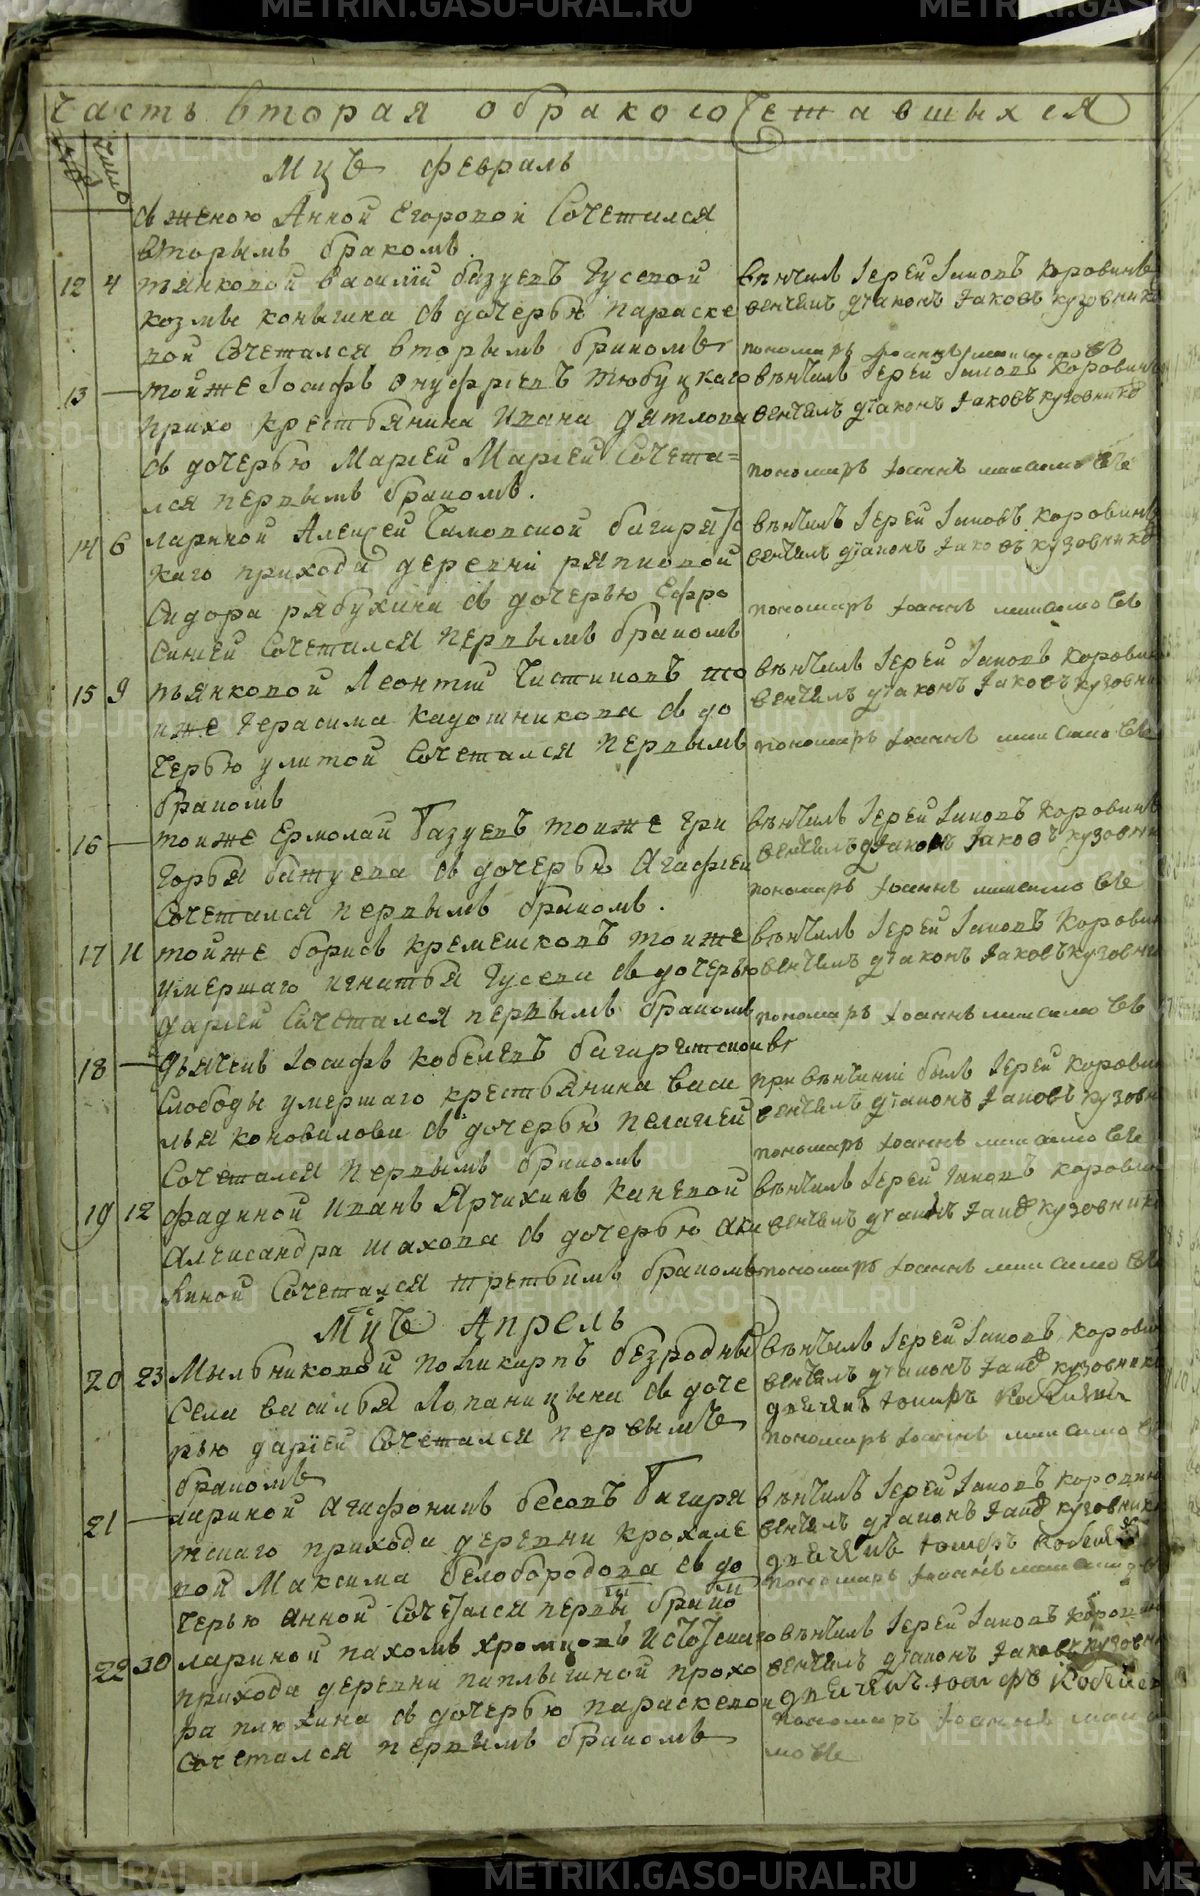 часть вторая обракосочетавшыхся
число
Мцъ февраль
съ женою Анной Егоровой Сочетался
вторымъ бракомъ.
12 4 пьянковой Василий базуевъ Гусевой
козмы коныгина съ дочерью параске
вой Сочетался вторымъ бракомъ
венчалъ Іерей Іаковъ Коровинъ
венчалъ діаконъ Іаковъ кузовнико
пономарь Іоаннъ
13 — тойже Іосифъ Онуфріевъ тюбуцкаго
прихо крестьянина Ивана дятлова
съ дочерью Маріей Маріей Сочета=
лся первымъ бракомъ.
венчилъ Іерей Іаковъ Коровинъ
венчалъ діаконъ Іаковъ кузовнико
пономарь Іоаннъ
14 6 лариной Алексей багаряс
каго прихода деревни
Сидора рябухина съ дочерью Ефро
синией Сочетался первымъ бракомъ
венчилъ Іерей Іаковъ Коровинъ
венчалъ діаконъ Іаковъ кузовнико
пономарь Іоаннъ
15 9 пьянковой Леонтій Чистяковъ то
иже Герасима Кадошникова съ до
черью улитой Сочетался первымъ
бракомъ
венчилъ Іерей Іаковъ Корови
венчалъ діаконъ Іаковъ кузовни
пономарь Іоаннъ
16 — тоиже Ермолай базуевъ тоиже Гри
горья бажуева съ дочерью Агафией
Сочетался первымъ бракомъ.
венчилъ Іерей Іаковъ Коровинъ
венчалъ діаконъ Іаковъ кузовни
пономарь Іоаннъ
17 11 тойже борисъ кремешковъ тоиже
умершаго игнатья Гусева съ дочерью
дарьей Сочетался первымъ бракомъ
венчилъ Іерей Іаковъ Корови
венчалъ діаконъ Іаковъ кузовни
пономарь Іоаннъ
18 — Дьячекъ Іосифъ кобелевъ багарятскои
Слободы умершаго крестьянина Васи
лья коновалова съ дочерью пелагией
Сочетался первымъ бракомъ
при венчании былъ Іерей Корови
венчалъ діаконъ Іаковъ кузовн
пономарь Іоаннъ
19 12 фадиной Иванъ Ярчихинъ Каневой
Алеисандра шахова съ дочерью аки
линой Сочетался третьимъ бракомъ
венчилъ Іерей Іаковъ Корови
венчалъ діаконъ Іаковъ кузовник
пономарь Іоаннъ
Мцъ Апрель
20 23 Мыльниковой поликарпъ безродны
Села василья Лопаницына съ доче
рью дарией Сочетался первымъ
бракомъ
венчилъ Іерей Іаковъ Корови
венчалъ діаконъ Іаковъ кузовник
дьячекъ Іосифъ Кобелевъ
пономарь Іоаннъ
21 — лариной Агафонникъ бесовъ багаря
тскаго прихода деревни крохале
вой Максима белобородова съ до
черью анной Сочетался первы бракомъ
венчилъ Іерей Іаковъ Коровин
венчалъ діаконъ Іаковъ кузовник
дьячекъ Іосифъ Кобелевъ
пономарь Іоаннъ
22 30 лариной пахомъ хромцовъ Исотскаго
прихода деревни паплыгиной прохо
ра плюхина съ дочерью параскевой
Сочетался первымъ бракомъ
венчилъ Іерей Іаковъ Корови
венчалъ діаконъ Іаковъ кузовн
дьячекъ Іосифъ Кобелев
пономарь Іоаннъ
METRIKI.GASO-URAL.RU